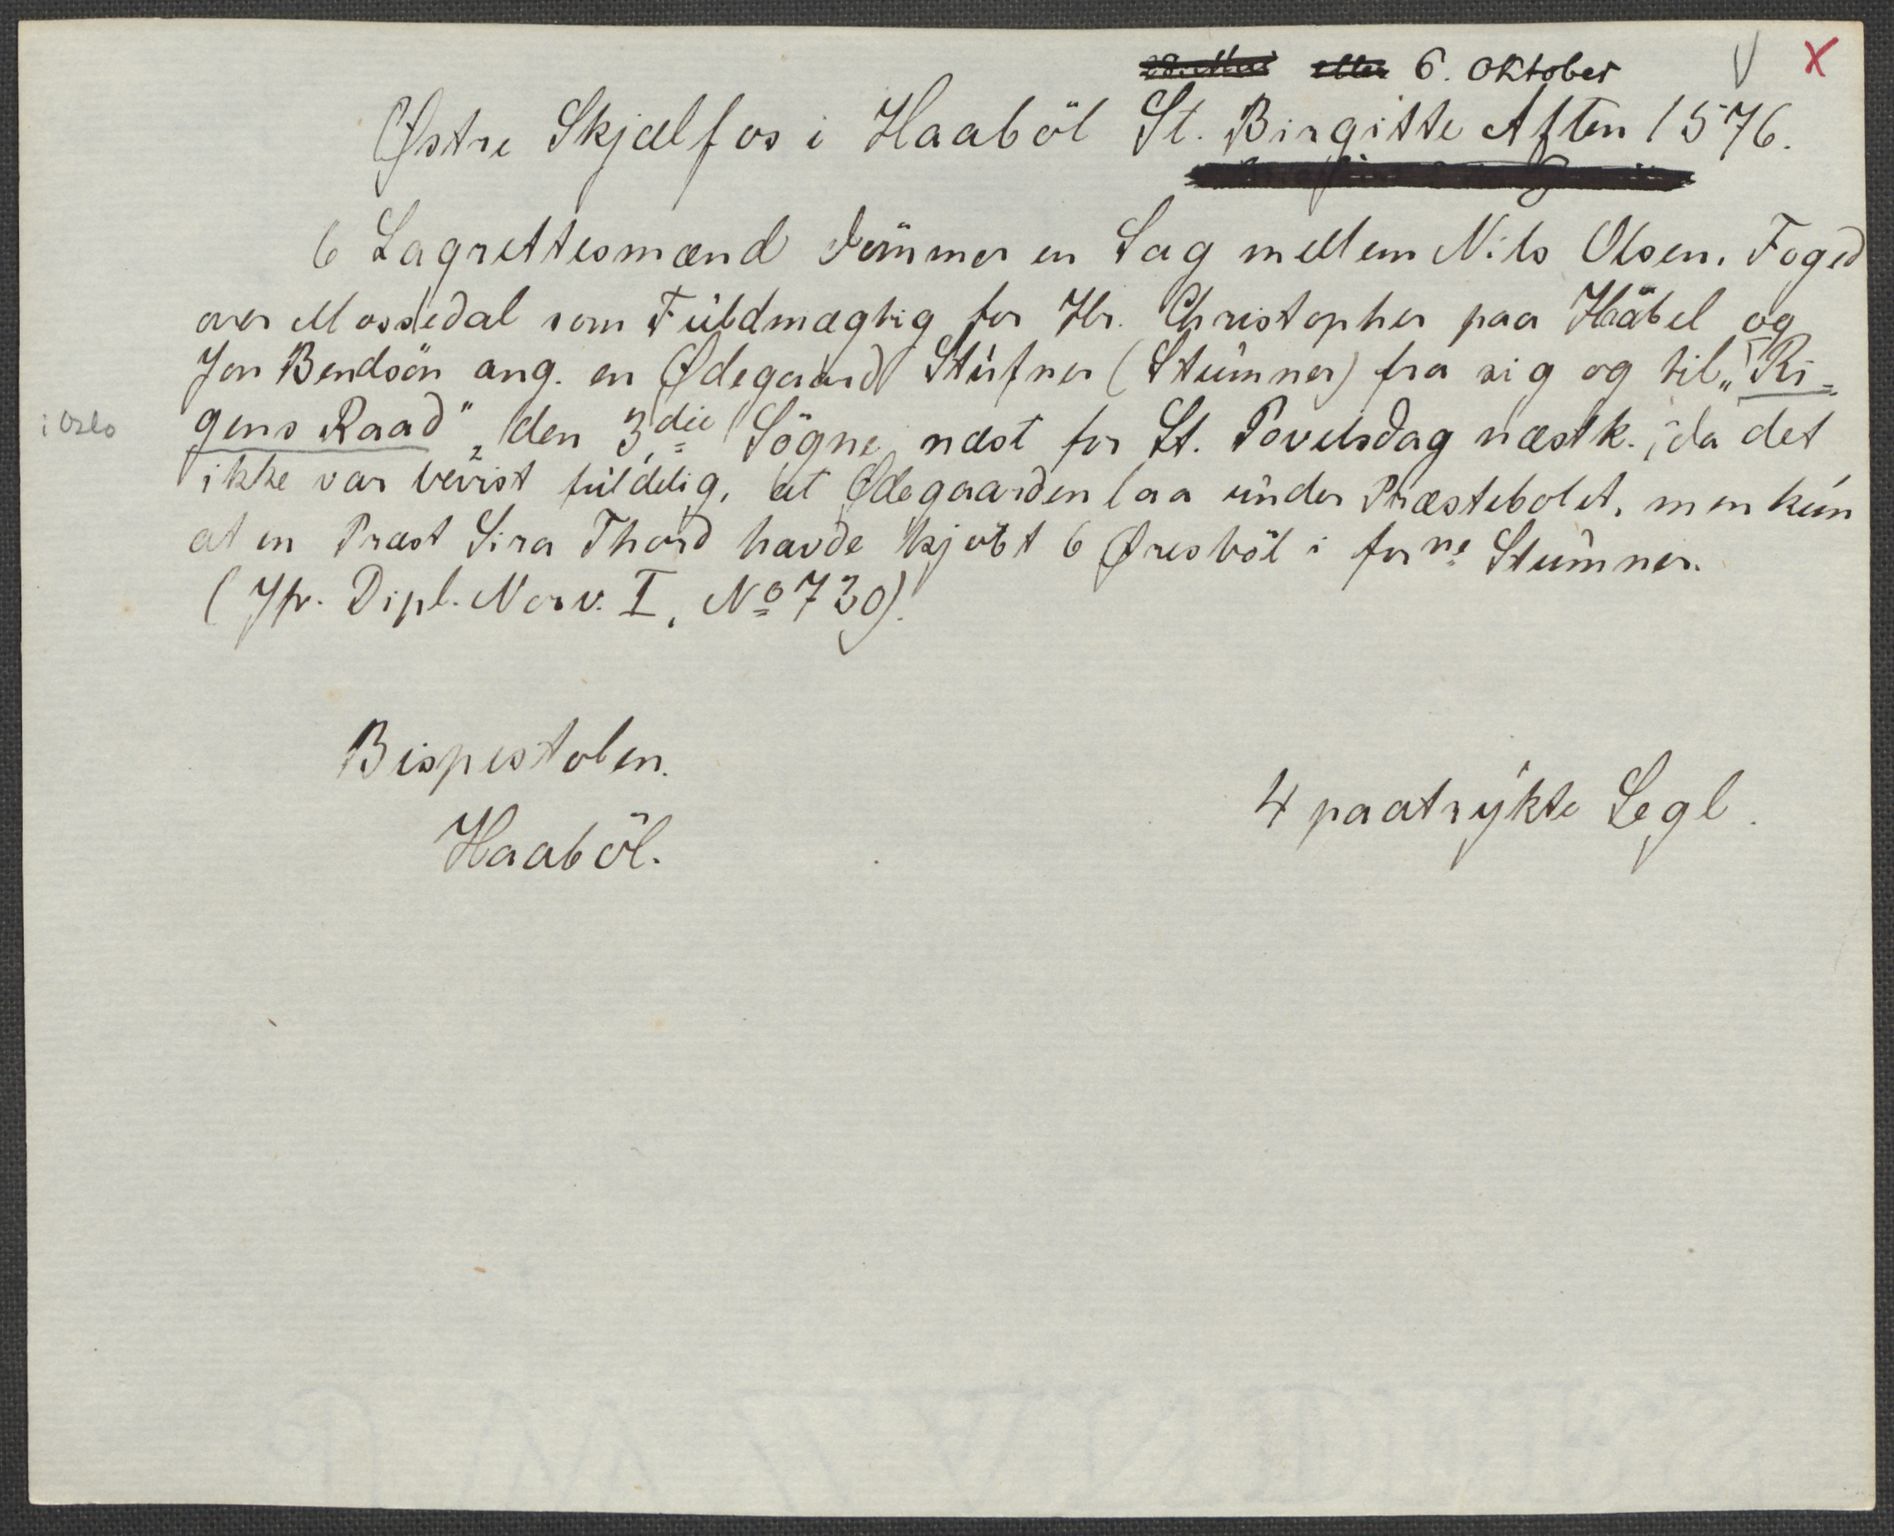 28. Mai eller 6. Oktober
Østre Skjælfos i Haaböl St. Birgitte Aften 1576.
6 Lagrettesmænd dömmer en Sag mellem Nils Olsen, Foged
over Mossedal som Fuldmægtig for Hr. Christopher paa Haabel og
Jon Bendsön ang. en Ødegaard Stufner (Stumner) fra sig og til „Ri-
gens Raad" i Oslo den 3die Sögne næst for St. Povelsdag næstk., da det
ikke var bevist fuldelig, at Ødegaarden laa under Præstebolet, men kun
at en Præst Sira Thord havde kjöbt 6 Øresból i forne Stumner.
(Jfr. Dipl. Norv. I, No 730).
Bispestolen.
Haaböl.
4 paatrykte Segl.